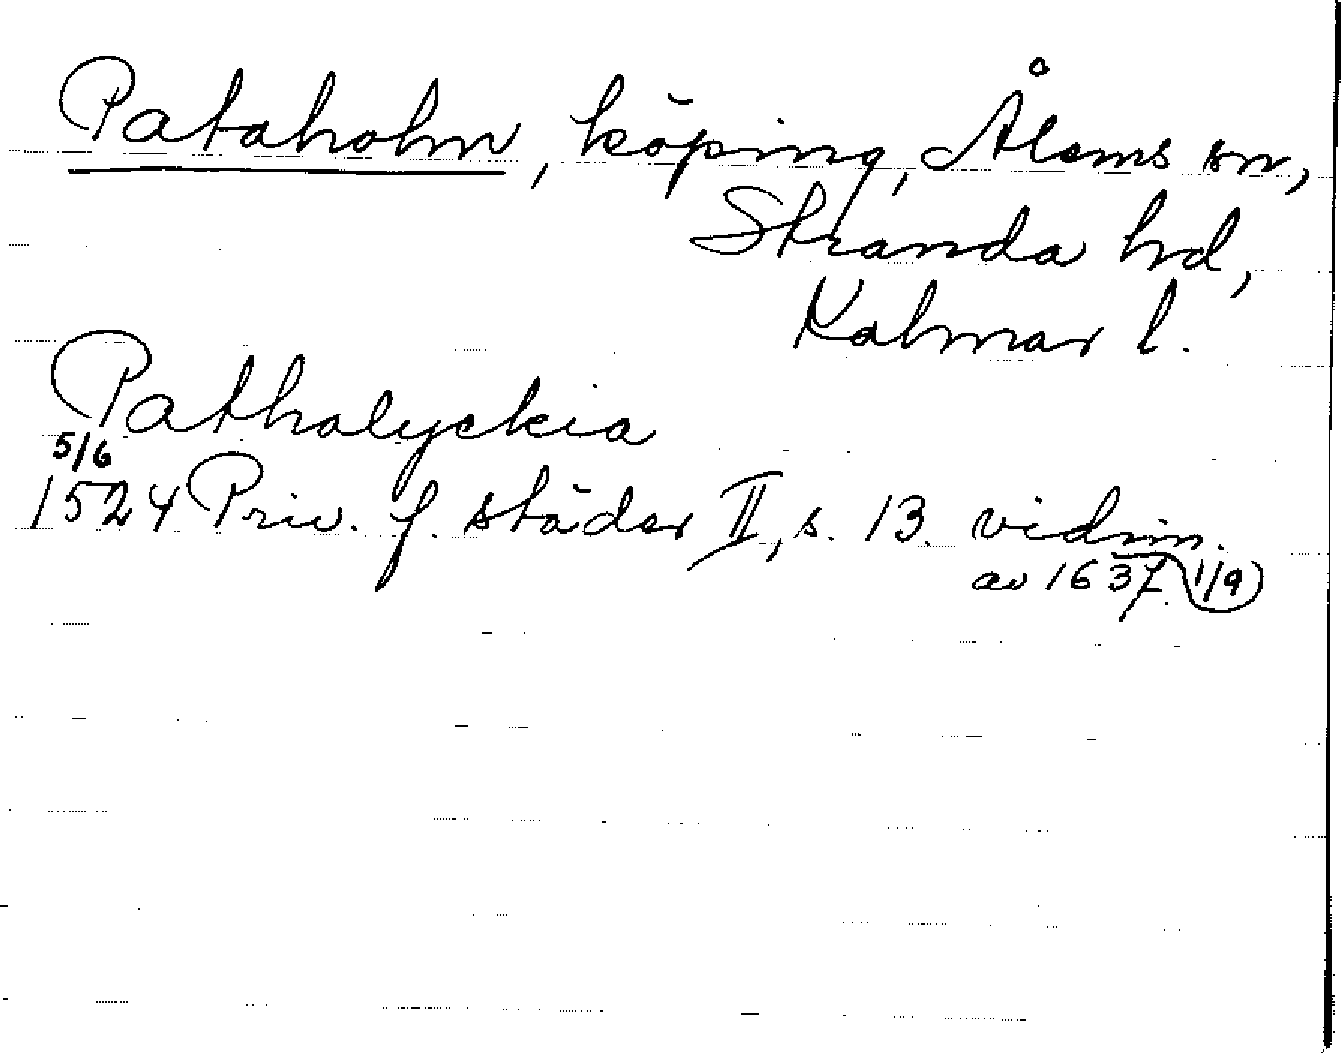 Pataholm, köping, Ålems sn,
Stranda hd,
Kalmar l.
Pathalyckia
5/6
1524 Priv. f. städer II, s. 13. vidim.
av 1637 (1/9)